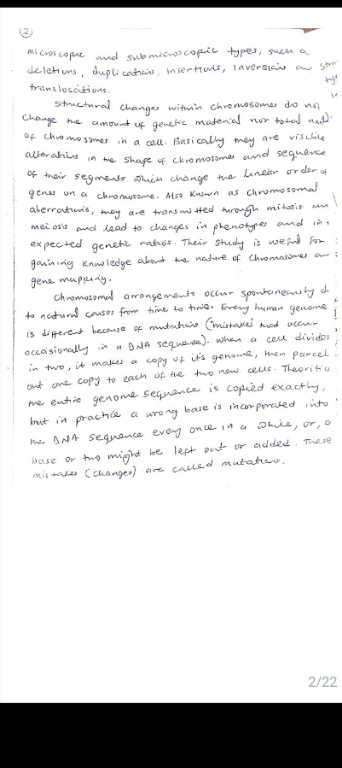 2
microscopic and submicroscopic types, such a
deletions, duplications, insertions, inversions an
translocations.
Structural changes within chromosomes do not
change the amount of genetic material nor total
of chromosomes in a cell. Basically they are visible
alterations in the shape of chromosomes and sequence
of their segments which change the linear order of
genes on a chromosome. Also known as chromosomal
aberrations, they are transmitted through mitosis an
meiosis and lead to changes in phenotypes and in
expected genetic ratios. Their study is useful for
gaining knowledge about the nature of chromosomes an
gene mapping.
Chromosomal arrangements occur spontaneously d
to natural causes from time to time. Every human genome
is different because of mutations (mistakes that occur
occasionally in a DNA sequence). When a cell divides
in two, it makes a copy of its genome, then parcel
out one copy to each of the two new cells.
the entire genome sequence is copied exactly,
but in practice a wrong base is incorporated into
the DNA sequence every once in a while, or, a
base or two might be left out or added. These
mistakes (changes) are called mutations.
2/22